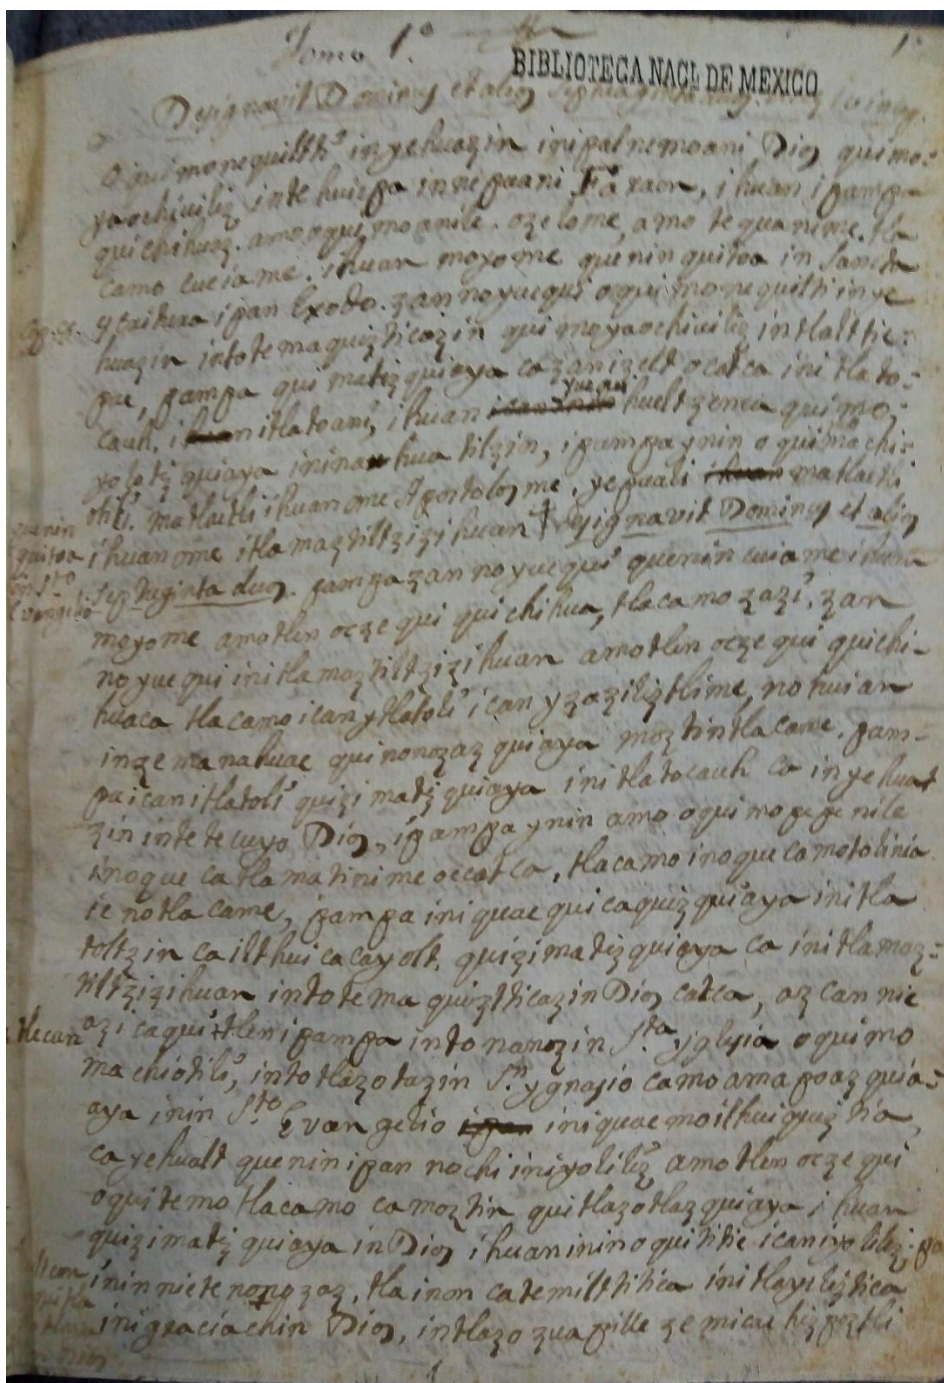 Tomo 1º.
1.
BIBLIOTECA NACL DE MEXICO
Designavit Dominus et alios septuaginta duos.
Oquimonequiltiº inyehuazin inipalnemoani Dios quimo-
yaochiviliz intehuicpa innepoani Faraon, ihuan ipampa
quichihuaz. amo oquimoanile. ozelome, amo tequanime. tla
camo cuciame. ihuan moyome quenin quitoa in Sancta
Escritura ipan Exodo. zannoyuequi oquimonequilti inye
huazin intotemaquizticazin quimoyaochiviliz intlaltic-
pac, pampa quimatizquiaya cazanizelt ocatca initlato-
cauh. initlatoani, ihuan yuequi hueltzenca quimo-
yolotizquiaya ininahuatilzin, ipampaynin oquimochi-
otili. matlactli ihuan ome Apostolosme. yepuali matlactli
ihuan ome itlamaztiltzizihuan Designavit Dominus et alios
quenin quitoa Sto Evangelio
septuginta duos. pampa zannoyuequi quenin cuiame ihuan
moyome amotlen oczequi quichihua, tlacamo zazi. zan
noyuequi initlamaztiltzizihuan amotlen oczequi quichi-
huaca tlacamo ican ytlatoli ican yzaziliztlime, nohuian
inzemanahuac quinonozazquiaya moztintlacame. pam-
pa icanitlatoli quizimatizquiaya initlatocauh ca inyehuat
zin intetecuyo Dios, ipampaynin amo oquimopepenile
inoque catlamatinime occatca, tlacamo inoque camotolinia
icnotlacame, pampa iniquac quicaquizquiaya initla
toltzin cailthuicacayolt. quizimatizquiaya ca initlamaz-
tiltzizihuan intotemaquizticazin Dios catca, azcan nic
azicaqui tlenipampa intonanzin Sta yglesia oquimo
machiotili, intotlazotazin Sn ygnasio camoamapoazquia-
aya inin Sto Evangelio iniquac moilhuiquiztia,
cayehualt queninipan nochi iniyoliliz amotlen oczequi
oquitemo tlacamo camoztin quitlazotlazquiaya ihuan
quizimatizquiaya inDios ihuan ininoquititic icaniyoliliz.
ininnictenonozaz, tla inon catemilttitica initlayeliztica
inigraciachin Dios, intlazozuapille zemicac hizpoztli